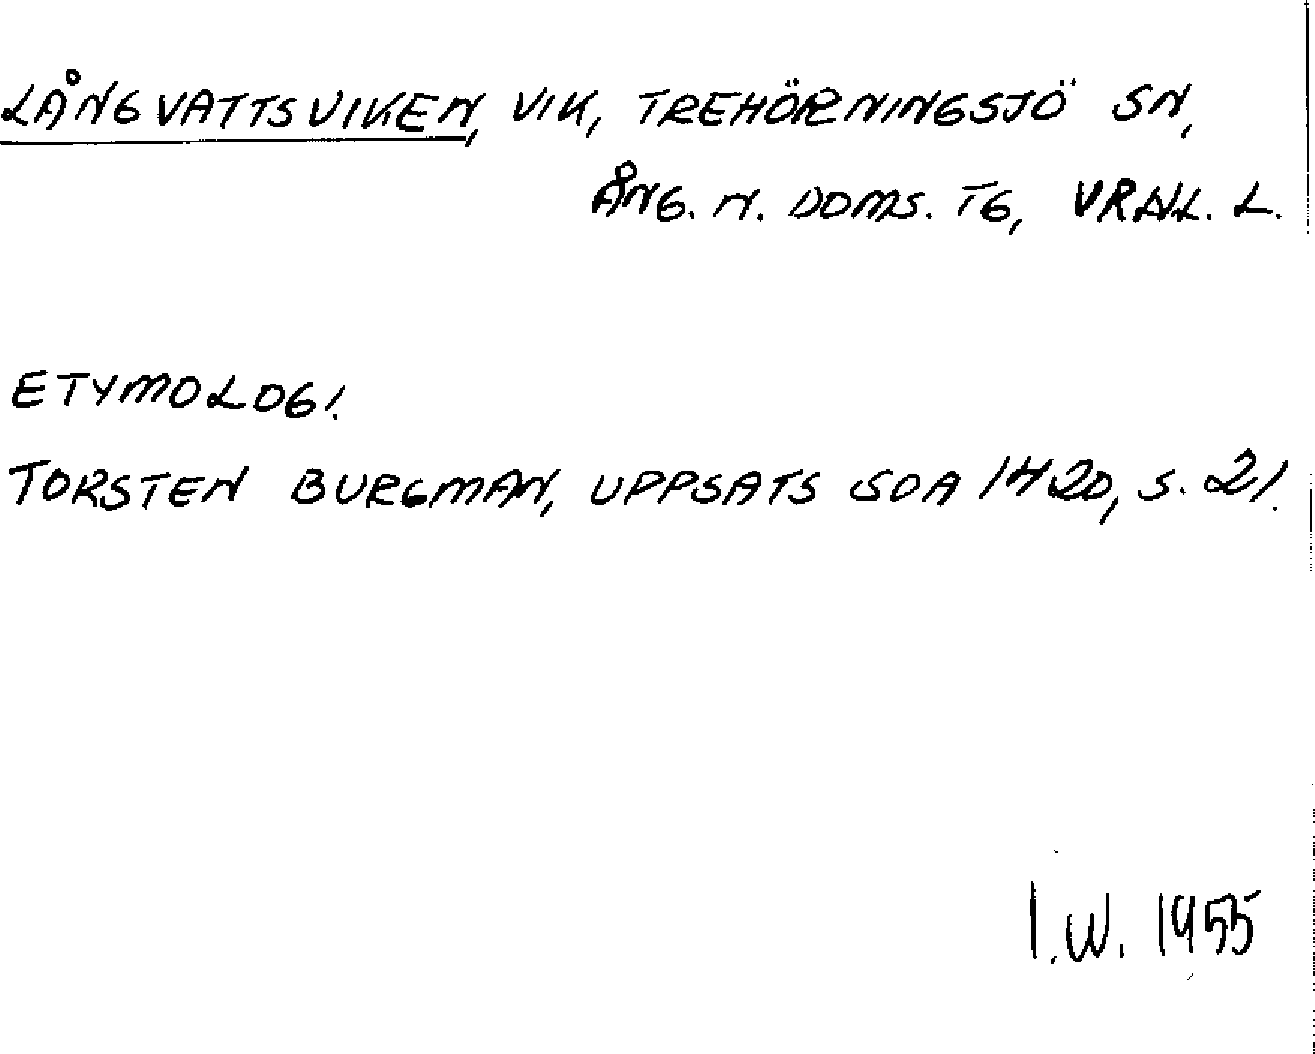 LÅNGVATTSVIKEN, VIK, TREHÖRNINGSJÖ SN,
ÅNG. N. DOMS. TG, VRNL. L.
ETYMOLOGI.
TORSTEN BURGMAN, UPPSATS SOA 1420, S. 21.
I.W. 1955